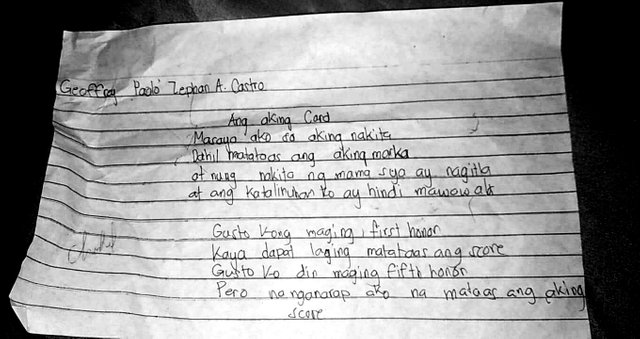 Geoffrey Paolo Zephan A. Castro
Ang aking Card
Masaya ako sa aking nakita
Dahil matataas ang aking marka
at nung nakita ng mama sya ay nagitla
at ang katalinuhan ko ay hindi mawawala
Gusto kong maging first honor
Kaya dapat laging matataas ang score
Gusto ko din maging fifth honor
Pero nangangarap ako na mataas ang aking
score